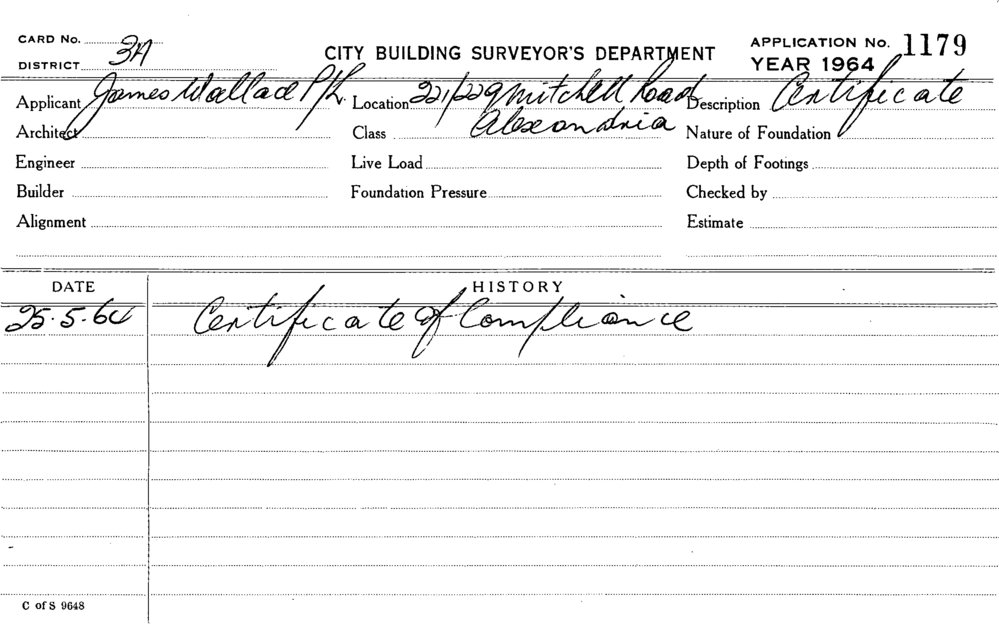 CARD No.
DISTRICT 3A
CITY BUILDING SURVEYOR'S DEPARTMENT
APPLICATION No. 1179
YEAR 1964
Applicant James Wallace P/L. Location 221/229 Mitchell Road Description Certificate
Architect Class Alexandria Nature of Foundation
Engineer Live Load Depth of Footings
Builder Foundation Pressure Checked by
Alignment Estimate
DATE HISTORY
25.5.64 Certificate of Compliance
C of S 9648